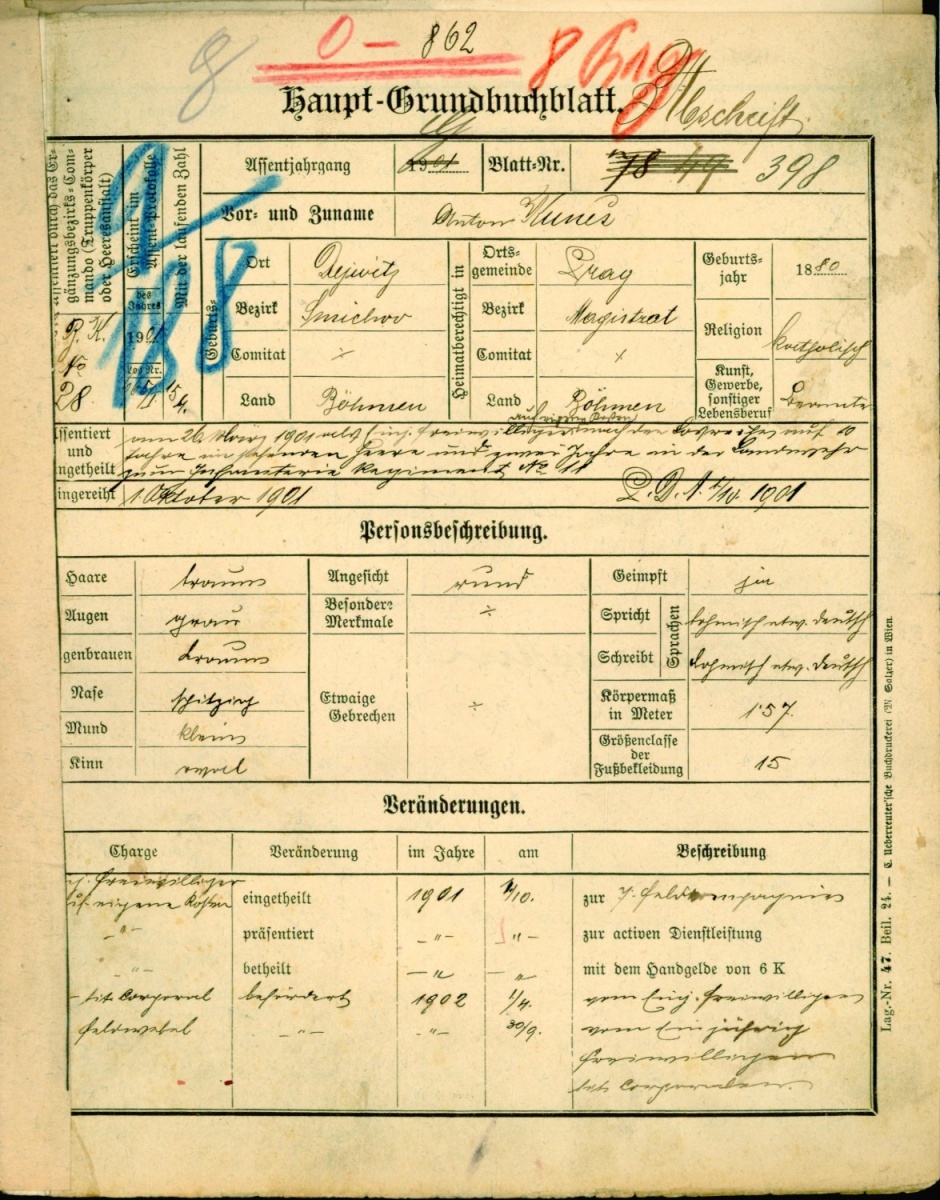 8 0 – 862 8
Haupt-Grundbuchblatt. Abschrift
gänzungsbezirks-Com-
mando (Truppenkörper
oder Heeresanstalt)
Erscheint im
Assent-Protokolle
Mit der laufenden Zahl
des
Jahres
1901
Los Nr.
No
28
Assentjahrgang 1901 Blatt-Nr. 78 49 398
Vor- und Zuname Anton Kuneš
Geburts-
Ort Dejwitz
Bezirk Smichov
Comitat ×
Land Böhmen
Heimatberechtigt in
Orts-
gemeinde Prag
Bezirk Magistrat
Comitat ×
Land Böhmen
Geburts-
jahr 1880
Religion katholisch
Kunst,
Gewerbe,
sonstiger
Lebensberuf Beamte
auf eigene Kosten
ssentiert am 26. März 1901 als Einj. freiwilliger nach der Losreihe auf 10
und Jahre im stehenden Heere und zwei Jahre in der Landwehr
ngetheilt zum Infanterie Regiment No 11
ingereiht 1. Oktober 1901 1901
Personsbeschreibung.
Haare braun Angesicht rund Geimpft ja
Augen grau Besondere
Merkmale ÷ Spricht Sprachen böhmisch etw. deutsch
genbrauen braun Schreibt böhmisch etw. deutsch
Nase spitzig Etwaige
Gebrechen ÷ Körpermaß
in Meter 1·57
Mund klein Größenclasse
der
Fußbekleidung 15
Kinn oval
Veränderungen.
Charge Veränderung im Jahre am Beschreibung
j. freiwilliger
uf eigene Kosten eingetheilt 1901 1/10. zur 7. Feldkompagnie
–"– präsentiert –"– "– zur activen Dienstleistung
–"– betheilt –" –" mit dem Handgelde von 6 K
tit. Corporal befördert 1902 1/4. vom Einj. freiwilligen
Feldwebel –"– –"– 30/9. vom Einjährig
freiwilligen
tit. Corporalen
Lag.-Nr. 47. Beil. 24. — C. Ueberreuter'sche Buchdruckerei (M. Salzer) in Wien.